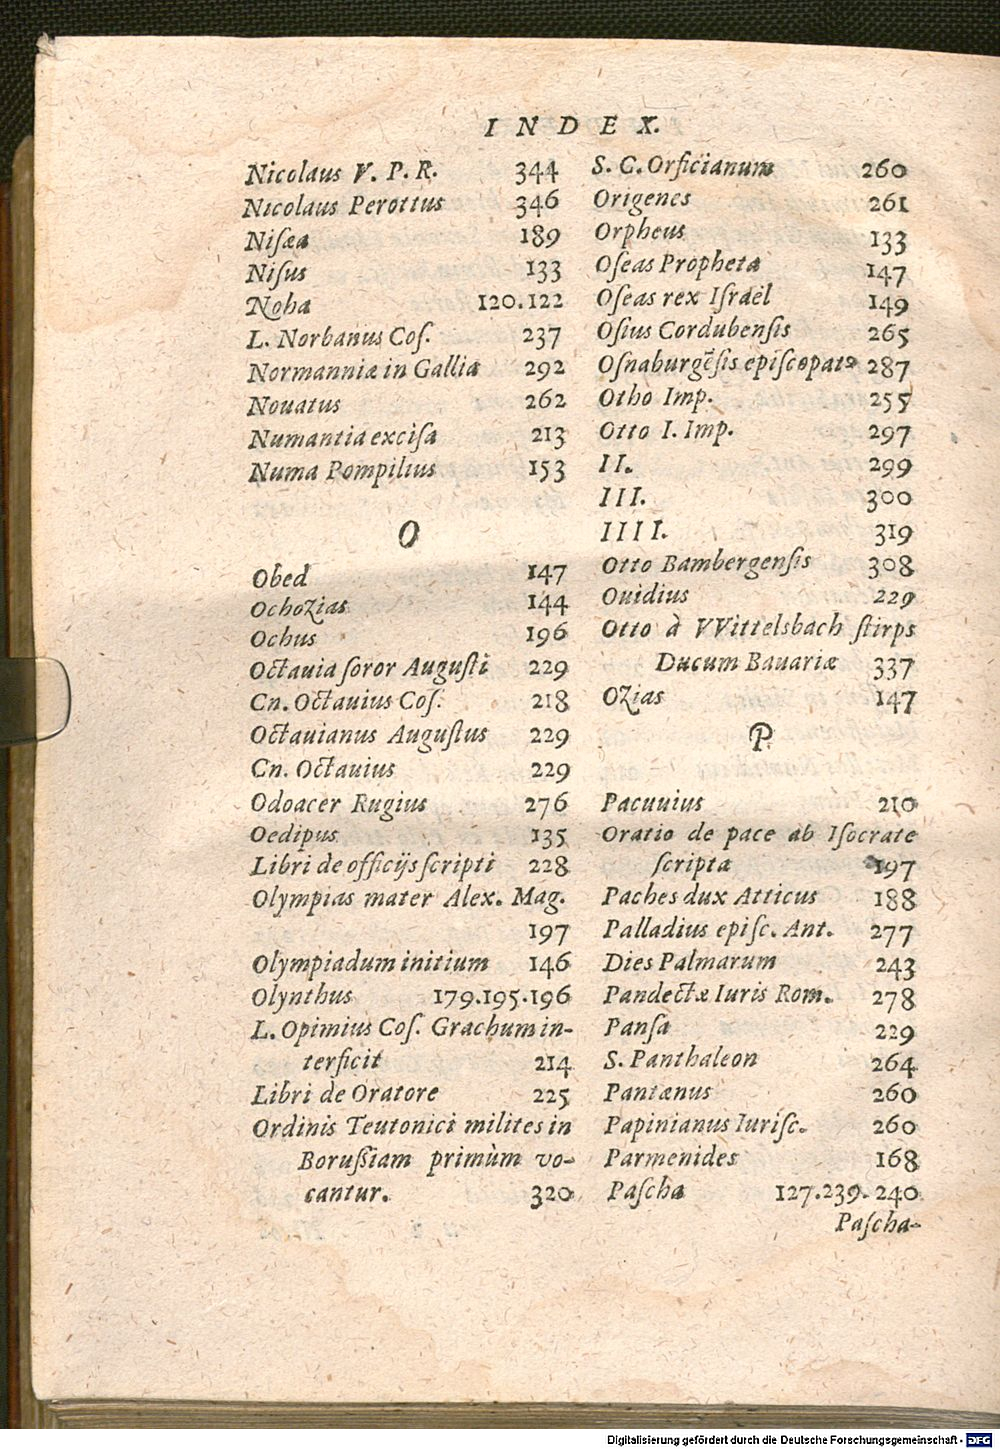 INDEX.
Nicolaus V. P. R. 344
Nicolaus Perottus 346
Niſæa 189
Niſus 133
Noha 120.122
L. Norbanus Coſ. 237
Normanniæ in Gallia 292
Nouatus 262
Numantia exciſa 213
Numa Pompilius 153
O
Obed 147
Ochozias 144
Ochus 196
Octauia ſoror Auguſti 229
Cn. Octauius Coſ. 218
Octauianus Auguſtus 229
Cn. Octauius 229
Odoacer Rugius 276
Oedipus 135
Libri de officijs ſcripti 228
Olympias mater Alex. Mag.
197
Olympiadum initium 146
Olynthus 179.195.196
L. Opimius Coſ. Grachum in-
terficit 214
Libri de Oratore 225
Ordinis Teutonici milites in
Boruſſiam primùm vo-
cantur. 320
S. C. Orficianum 260
Origenes 261
Orpheus 133
Oſeas Propheta 147
Oſeas rex Iſraël 149
Oſius Cordubenſis 265
Oſnaburgēſis epiſcopatꝰ 287
Otho Imp. 255
Otto I. Imp. 297
II. 299
III. 300
IIII. 319
Otto Bambergenſis 308
Ouidius 229
Otto à VVittelsbach ſtirps
Ducum Bauariæ 337
Ozias 147
P
Pacuuius 210
Oratio de pace ab Iſocrate
ſcripta 197
Paches dux Atticus 188
Palladius epiſc. Ant. 277
Dies Palmarum 243
Pandectæ Iuris Rom. 278
Panſa 229
S. Panthaleon 264
Pantænus 260
Papinianus Iuriſc. 260
Parmenides 168
Paſcha 127.239.240
Paſcha-
Digitalisierung gefördert durch die Deutsche Forschungsgemeinschaft - DFG